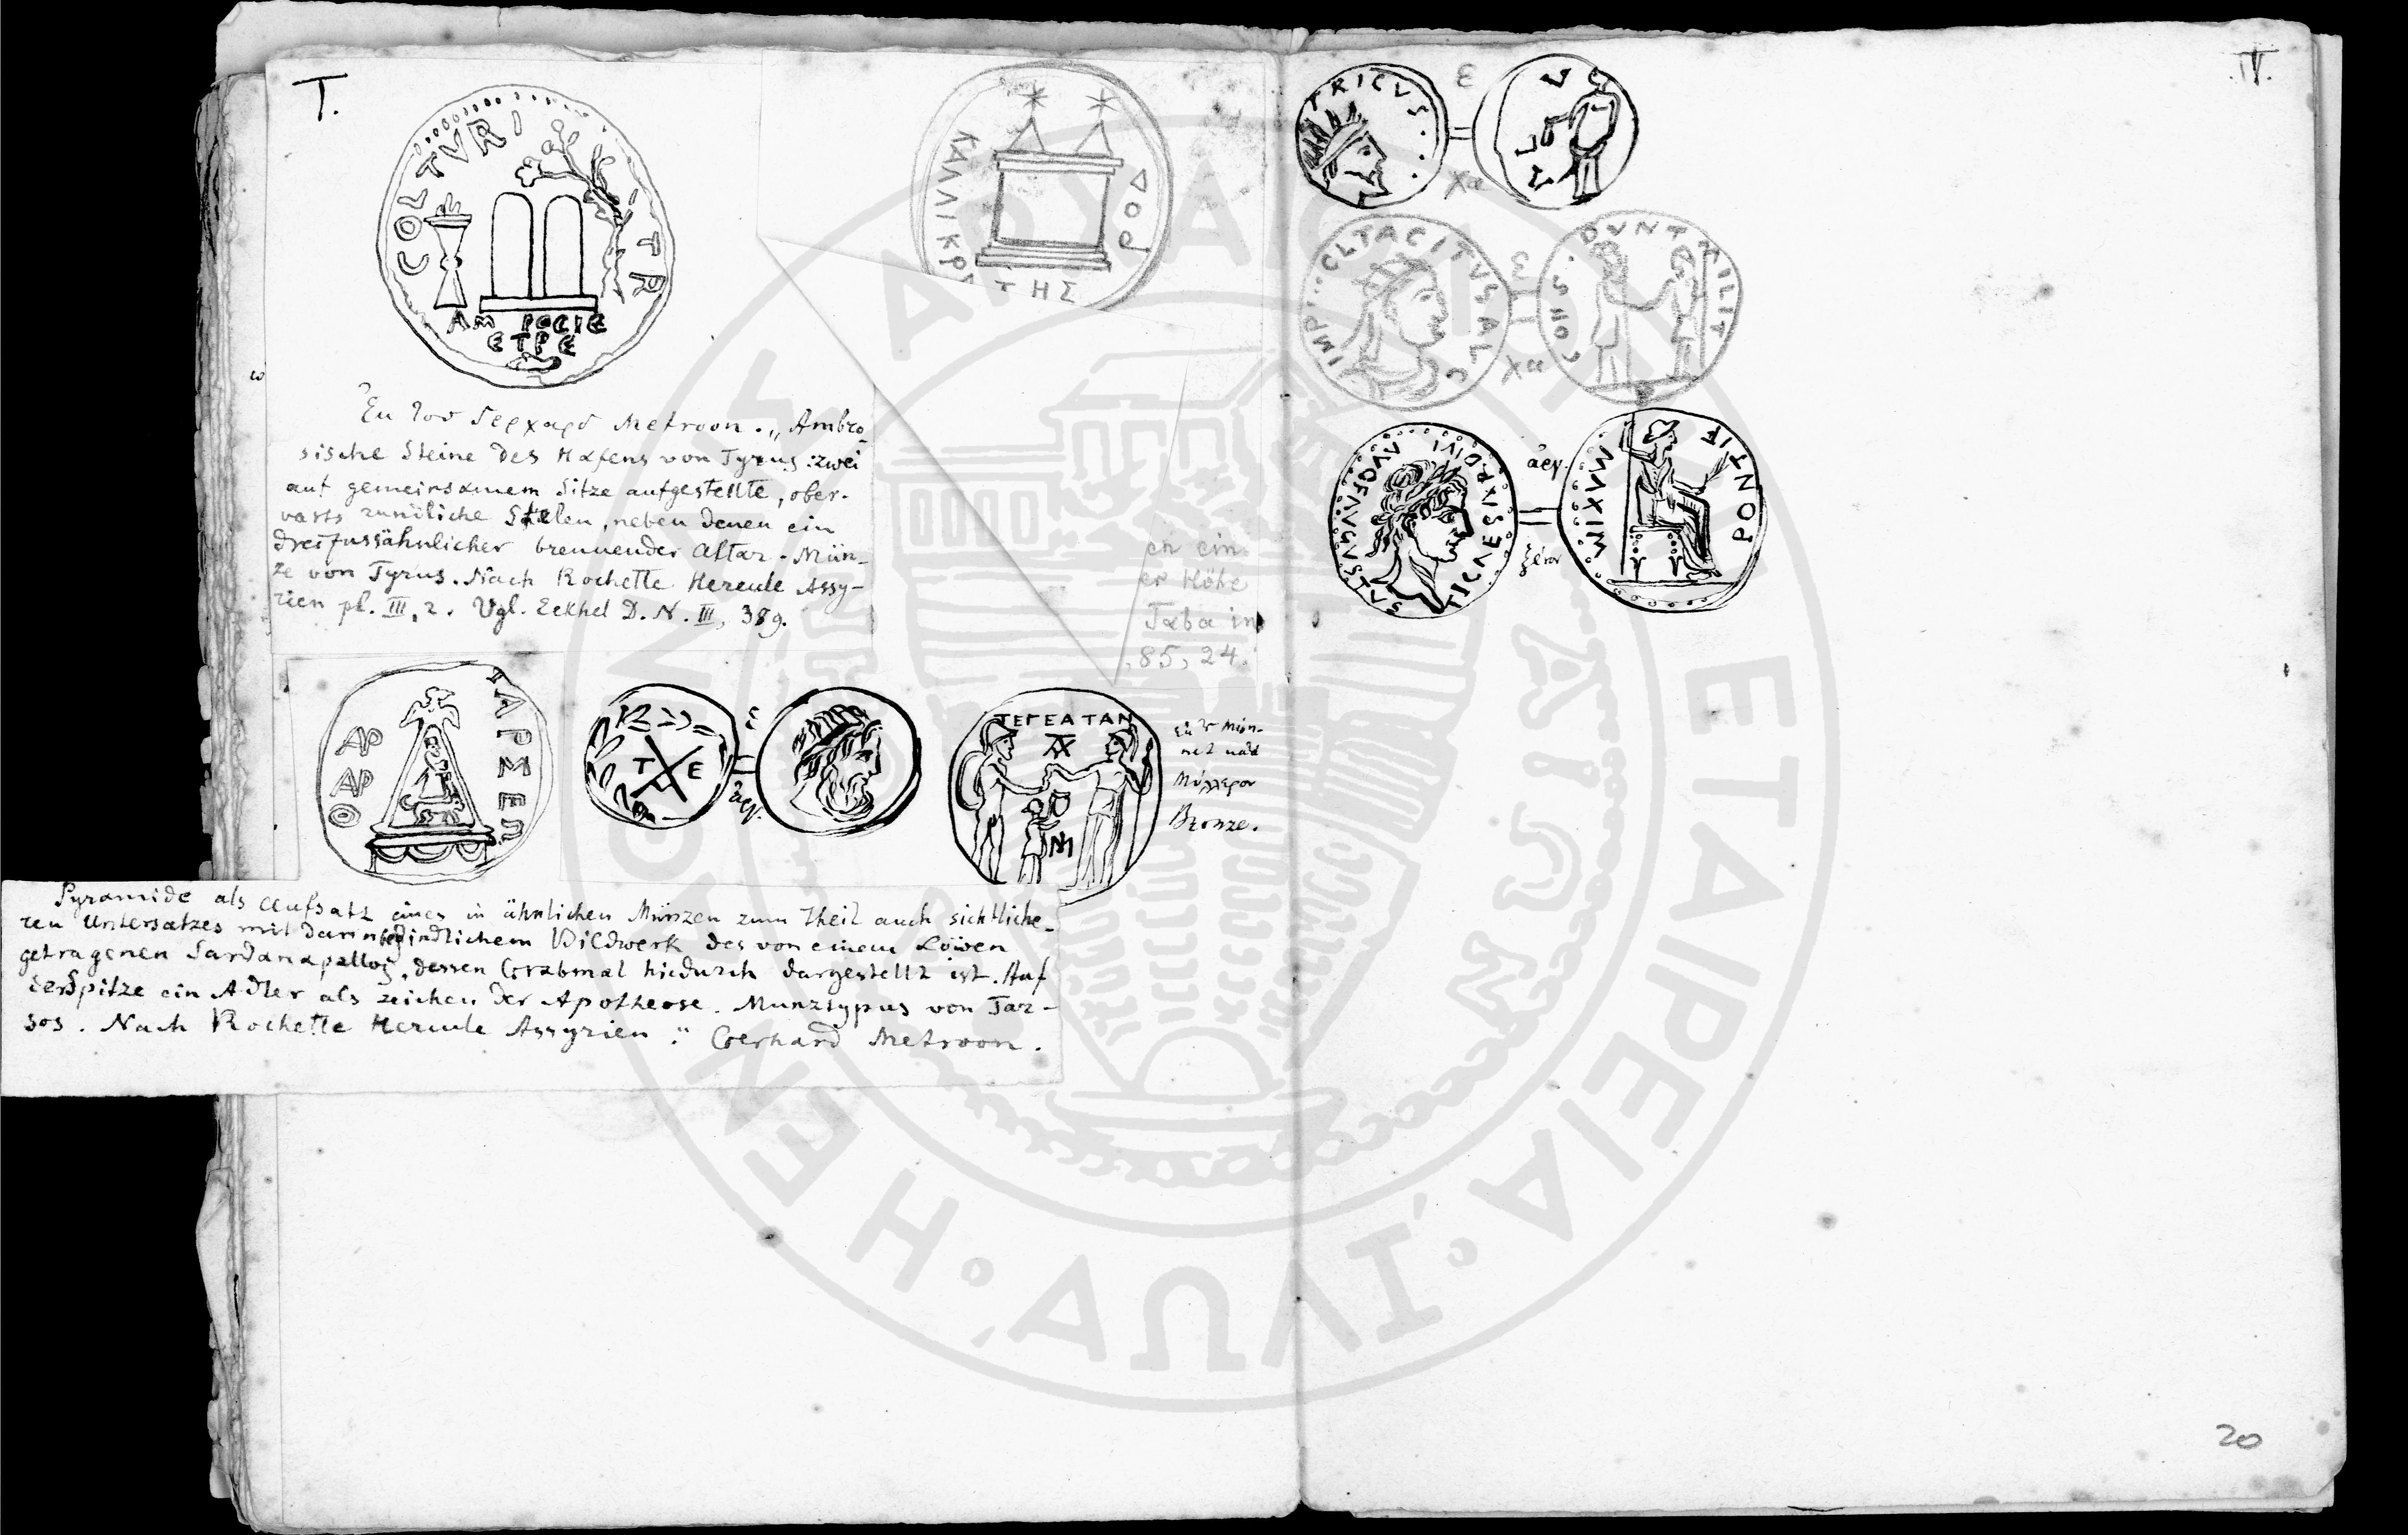 T.
COL TVRI
TR
AM ROCIE
ETPE
Ἐκ τοῦ Γερχαρδ Metroon. „Ambro-
sische Steine des Hafens von Tyrus: zwei
auf gemeinsamem Sitze aufgestellte, ober-
warts rundliche Stelen, neben denen ein
dreifussähnlicher brennender Altar. Mün-
ze von Tyrus. Nach Rochette Hercule Assy-
rien pl. III, 2. Vgl. Eckhel D. N. III, 389.
ΚΑΛΛΙΚΡΑΤΗΣ
ΡΟΔ
en ein
er Höhe
Taba in
, 85, 24.
ΤΑΡΣΕΩ
ΑΡ
ΑΡ
Θ
Τ Ε
ε
ἀργ.
ΤΕΓΕΑΤΑΝ
Ἐκ τ Mion-
net
Μύλλερου
Bronze.
Pyramide als Aufsatz eines in ähnlichen Münzen zum Theil auch sichtliche-
ren Untersatzes mit darin befindlichem Bildwerk des von einem Löwen
getragenen Sardanapallos, dessen Grabmal hiedurch dargestellt ist. Auf
der Spitze ein Adler als zeichen der Apotheose. Munztypus von Tar-
sos. Nach Rochette Hercule Assyrien." Gerhard Metroon.
IV.
TRICVS
ε
χα
V
IMP·CLTACITVSAVG
ε
χα
COHS
TICAESARDIVI
AVGFAVGVSTVS
ἀργ.
ξένον
PONTIF
MAXIM
20
Η ΕΝ ΑΘΗΝΑΙΣ ΑΡΧΑΙΟΛΟΓΙΚΗ ΕΤΑΙΡΕΙΑ